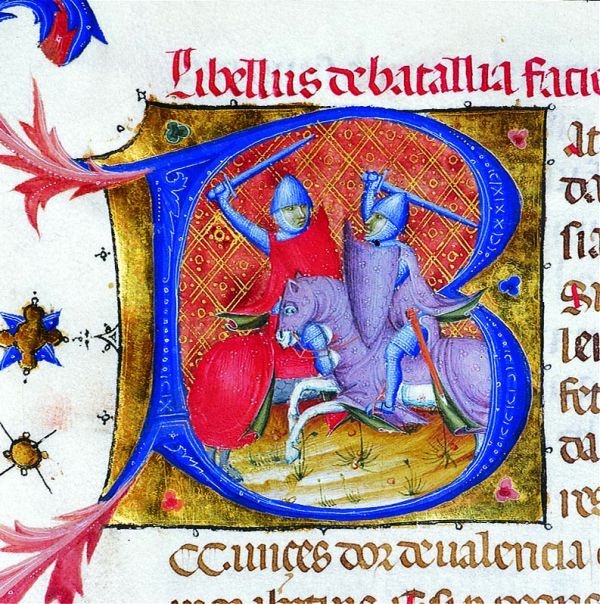 Libellus de batallia facie
B At
da
sia
len
fet
da
res
CC unçes dor de valencia